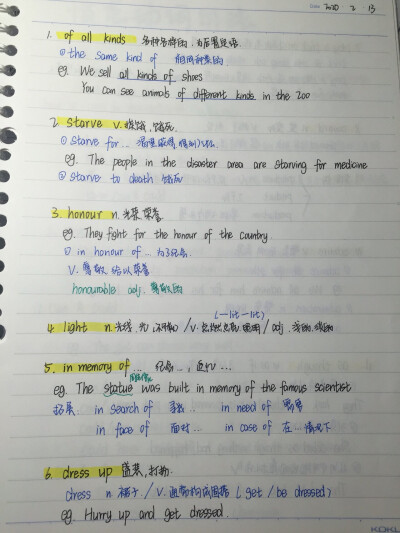 2020. 2. 13
1. of all kinds 各种各样的, 为后置定语
① the same kind of 相同种类的
eg. We sell all kinds of shoes
You can see animals of different kinds in the zoo
2. starve v. 挨饿, 饿死
① starve for...
eg. The people in the disaster area are starving for medicine
② starve to death 饿死
3. honour n. 光荣, 荣誉
eg. They fight for the honour of the country
① in honour of... 为了纪念
v. 尊敬, 给以荣誉
honourable adj. 尊敬的
(-lit-lit)
4. light n. 光线, 光, / v. 点燃, / adj.
5. in memory of ... 纪念..., 追忆...
eg. The statue was built in memory of the famous scientist
拓展. in search of 寻找.. in need of 需要
in face of 面对... in case of 在...情况下
6. dress up 盛装, 打扮.
dress n. 裙子. / v. (get / be dressed)
eg. Hurry up and get dressed.
KOKU